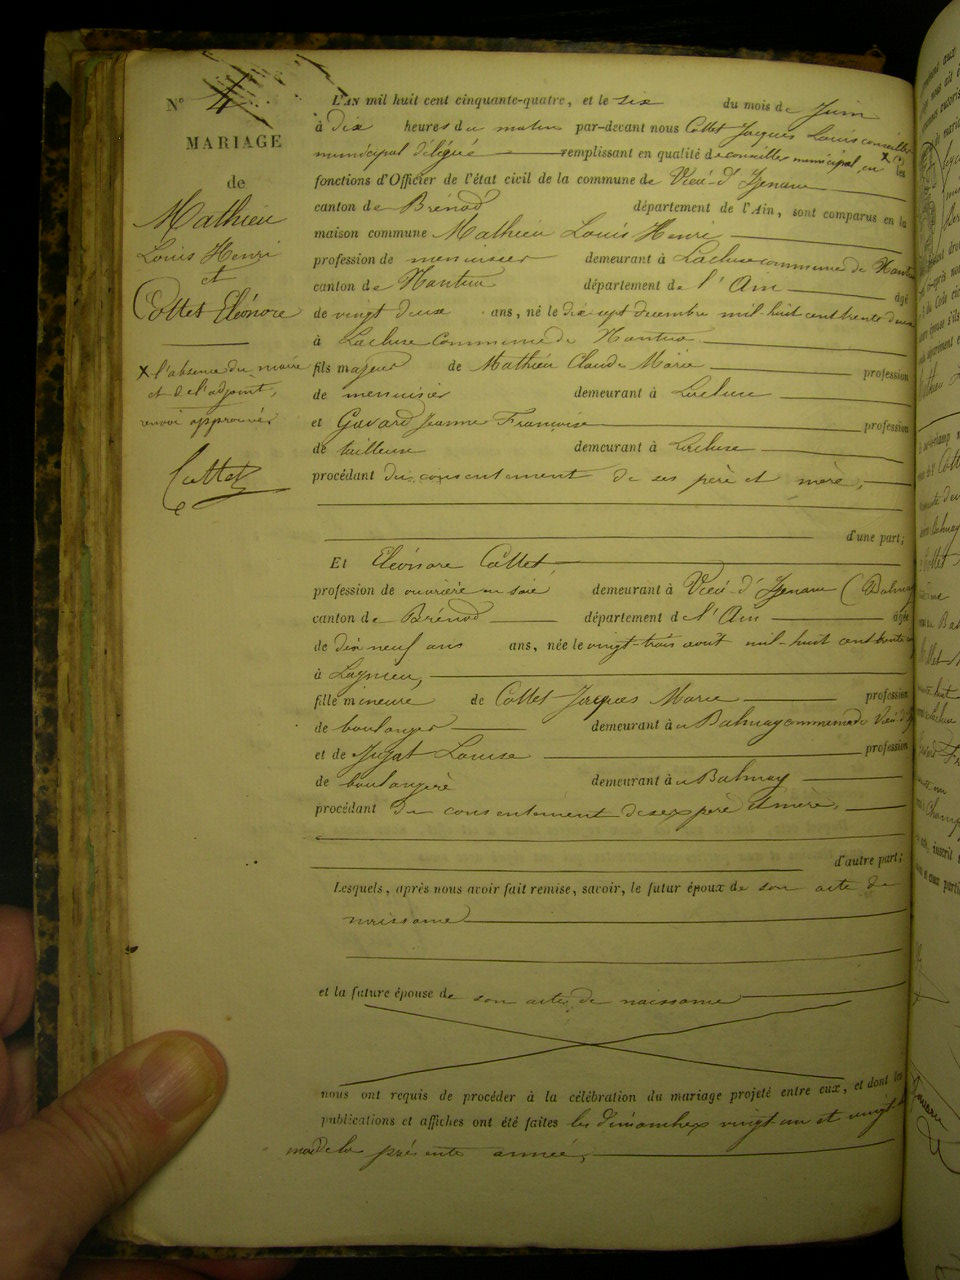 N° 4
MARIAGE
de
Mathieu
Louis Henri
et
Cottet Eléonore
X l'absence du maire
et de l'adjoint,
renvoi approuvés
Cottet
L'AN mil huit cent cinquante-quatre, et le six du mois de Juin
à dix heures du matin par-devant nous Cottet Jacques Louis conseiller
municipal délégué remplissant en qualité de conseiller municipal en X les
fonctions d'Officier de l'état civil de la commune de Vieu-d'Izenave
canton de Brénod département de l'Ain, sont comparus en la
maison commune Mathieu Louis Henri
profession de menuisier demeurant à Lacluse commune de Nantua
canton de Nantua département de l'Ain âgé
de vingt deux ans, né le dix sept decembre mil-huit cent trente deux
à Lacluse commune de Nantua
fils majeur de Mathieu Claude Marie profession
de menuisier demeurant à Lacluse
et Gavard Jeanne Françoise profession
de tailleuse demeurant à Lacluse
procédant du consentement de ses père et mère,
d'une part;
Et Eléonore Cottet
profession de ouvrière en soie demeurant à Vieu-d'Izenave (Balmay
canton de Brénod département de l'Ain âgée
de dix neuf ans ans, née le vingt-trois août mil-huit cent trente
à Lagnieu,
fille mineure de Cottet Jacques Marie profession
de boulanger demeurant à Balmay commune de Vieu d'Iz
et de Jujat Louise profession
de boulangère demeurant à Balmay
procédant du consentement de ses père et mère,
d'autre part;
Lesquels, après nous avoir fait remise, savoir, le futur époux de son acte de
naissance
et la future épouse de son acte de naissance
nous ont requis de procéder à la célébration du mariage projeté entre eux, et dont les
publications et affiches ont été faites les dimanches vingt-un et vingt
mai de la présente année,